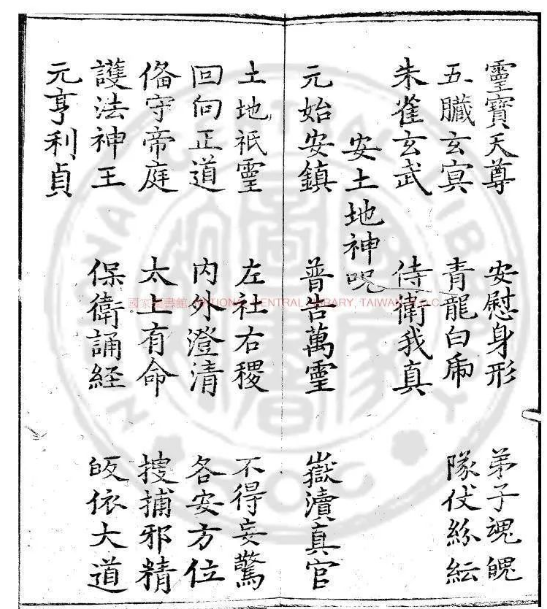 靈寶天尊 安慰身形 弟子魂魄
五臟玄冥 青龍白虎 隊仗紛紜
朱雀玄武 侍衛我真
安土地神呪
元始安鎮 普告萬靈 嶽瀆真官
土地祇靈 左社右稷 不得妄驚
回向正道 內外澄清 各安方位
俻守帝庭 太上有命 搜捕邪精
護法神王 保衛誦經 皈依大道
元亨利貞